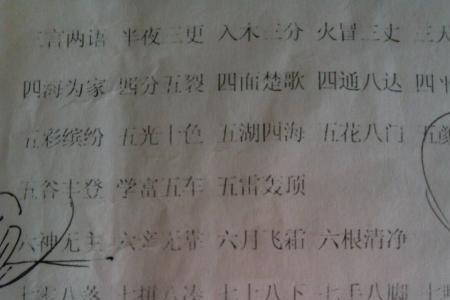 三言两语 半夜三更 入木三分 火冒三丈 三
四海为家 四分五裂 四面楚歌 四通八达 四
五彩缤纷 五光十色 五湖四海 五花八门 五颜
五谷丰登 学富五车 五雷轰顶
六神无主 六亲无靠 六月飞霜 六根清净
七零八落 七拼八凑 七上八下 七手八脚 七